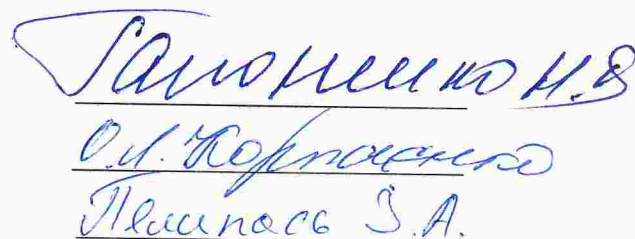 Гапоненко Н.В
О.И. Корпаченко
Пелипась З.А.